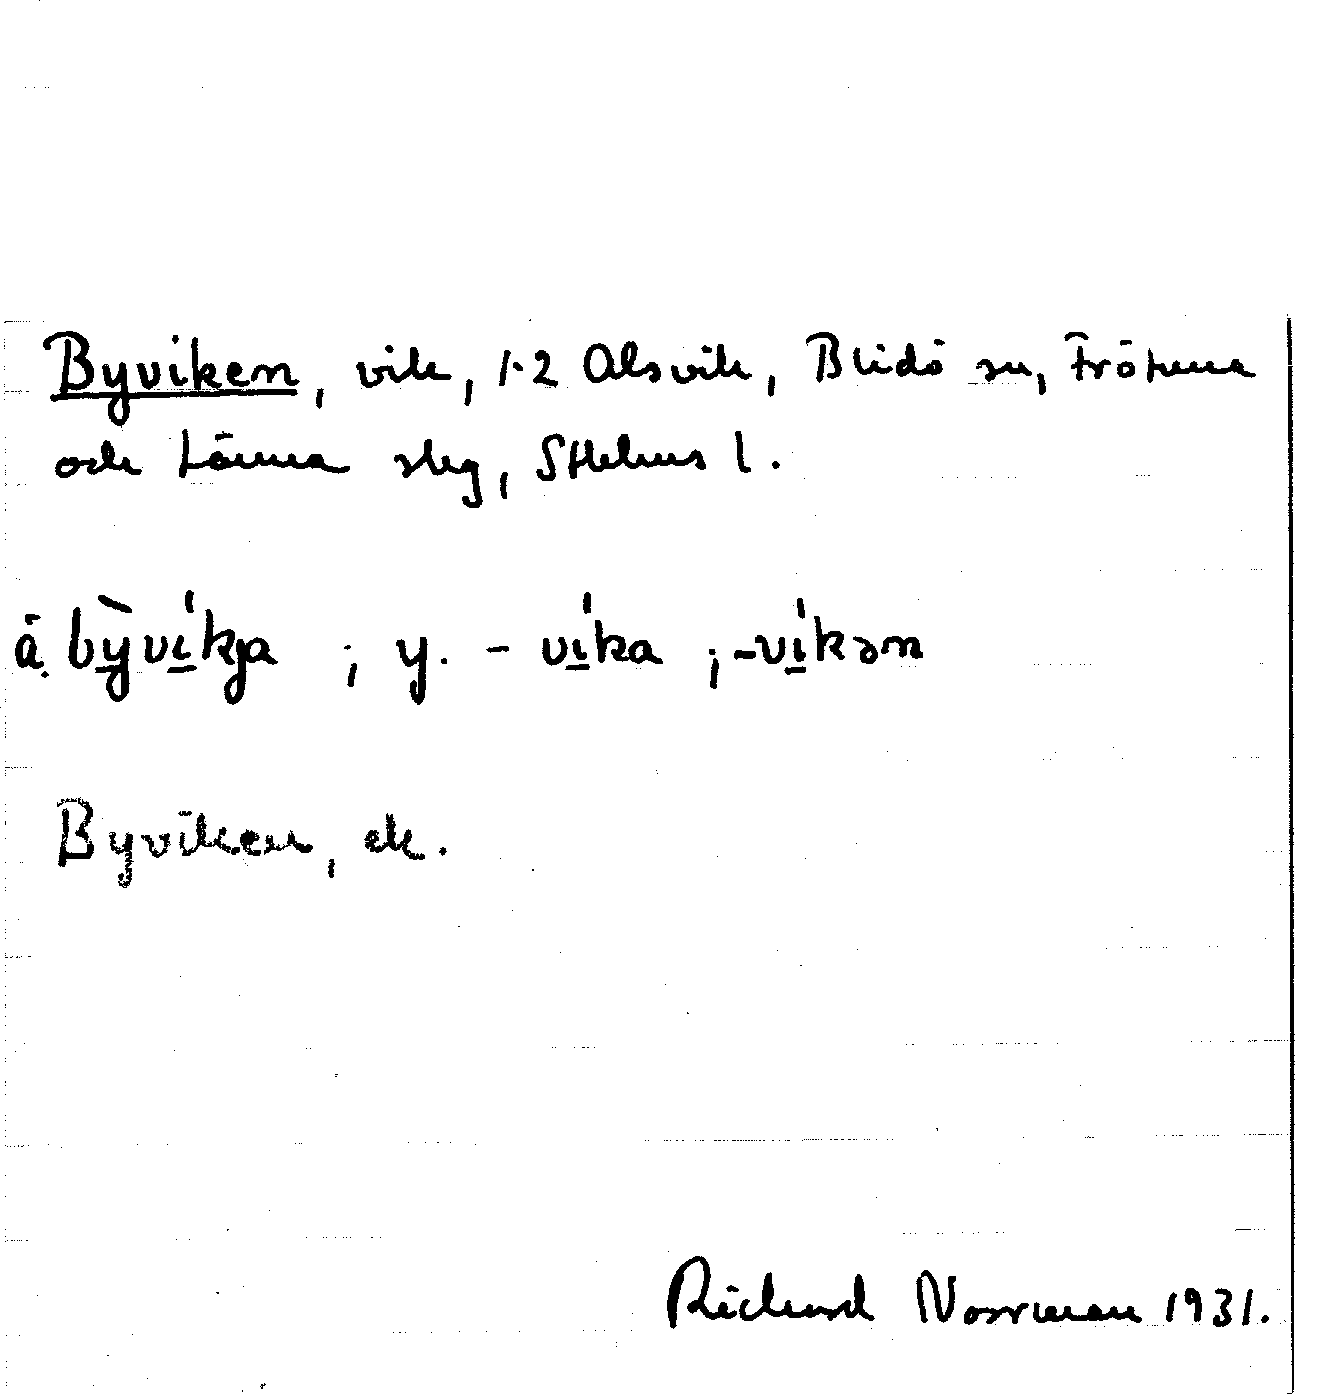 Byviken, vik, 1-2 Alsvik, Blidö sn, Frötuna
och Länna slg, Sthlms l.
å bỳví̱kja ; y. - ví̱ka ; -ví̱kən
Byviken, ek.
Richard Norrman 1931.